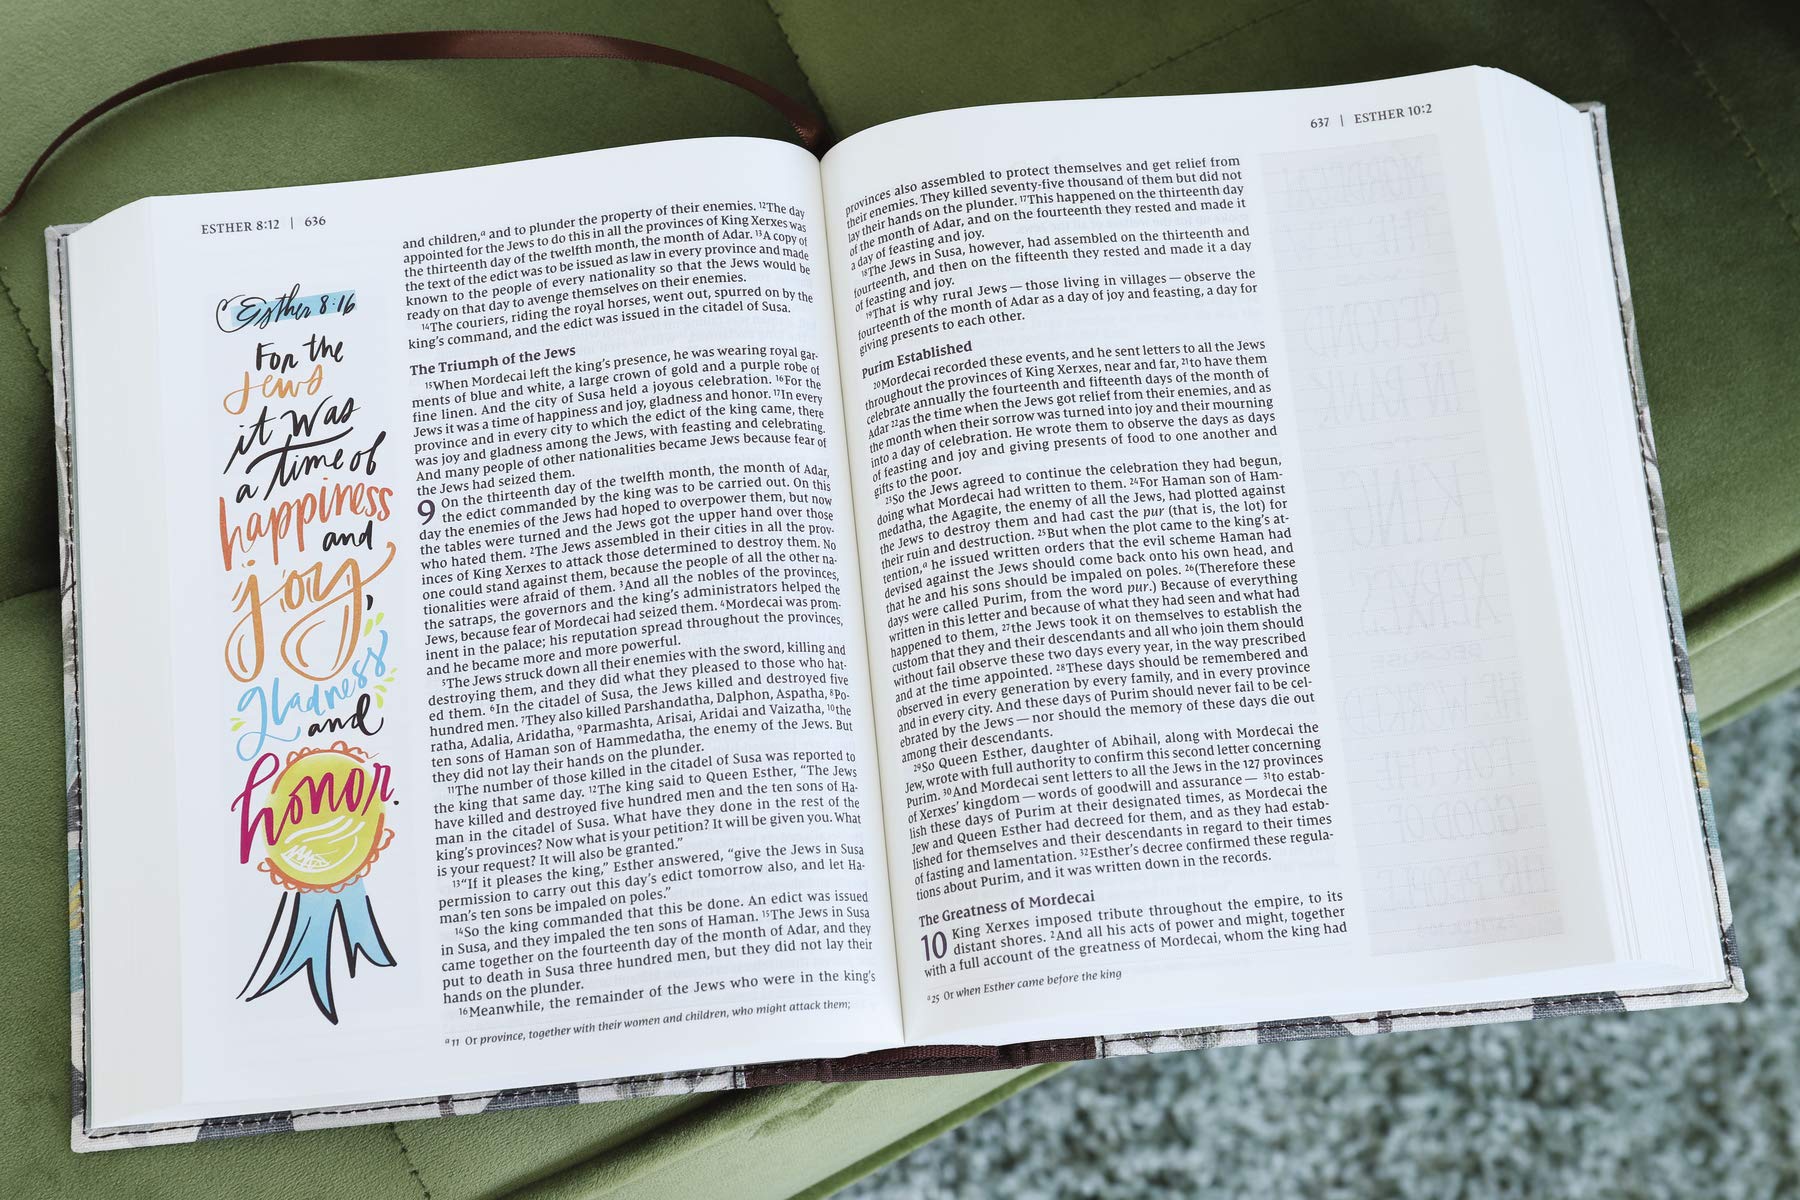 ESTHER 8:12 | 636
Esther 8:16
For the
Jews
it was
a time of
happiness
and
joy,
gladness
and
honor.
and children,ᵃ and to plunder the property of their enemies. ¹²The day
appointed for the Jews to do this in all the provinces of King Xerxes was
the thirteenth day of the twelfth month, the month of Adar. ¹³A copy of
the text of the edict was to be issued as law in every province and made
known to the people of every nationality so that the Jews would be
ready on that day to avenge themselves on their enemies.
¹⁴The couriers, riding the royal horses, went out, spurred on by the
king's command, and the edict was issued in the citadel of Susa.
The Triumph of the Jews
¹⁵When Mordecai left the king's presence, he was wearing royal gar-
ments of blue and white, a large crown of gold and a purple robe of
fine linen. And the city of Susa held a joyous celebration. ¹⁶For the
Jews it was a time of happiness and joy, gladness and honor. ¹⁷In every
province and in every city to which the edict of the king came, there
was joy and gladness among the Jews, with feasting and celebrating.
And many people of other nationalities became Jews because fear of
the Jews had seized them.
9 On the thirteenth day of the twelfth month, the month of Adar,
the edict commanded by the king was to be carried out. On this
day the enemies of the Jews had hoped to overpower them, but now
the tables were turned and the Jews got the upper hand over those
who hated them. ²The Jews assembled in their cities in all the prov-
inces of King Xerxes to attack those determined to destroy them. No
one could stand against them, because the people of all the other na-
tionalities were afraid of them. ³And all the nobles of the provinces,
the satraps, the governors and the king's administrators helped the
Jews, because fear of Mordecai had seized them. ⁴Mordecai was prom-
inent in the palace; his reputation spread throughout the provinces,
and he became more and more powerful.
⁵The Jews struck down all their enemies with the sword, killing and
destroying them, and they did what they pleased to those who hat-
ed them. ⁶In the citadel of Susa, the Jews killed and destroyed five
hundred men. ⁷They also killed Parshandatha, Dalphon, Aspatha, ⁸Po-
ratha, Adalia, Aridatha, ⁹Parmashta, Arisai, Aridai and Vaizatha, ¹⁰the
ten sons of Haman son of Hammedatha, the enemy of the Jews. But
they did not lay their hands on the plunder.
¹¹The number of those killed in the citadel of Susa was reported to
the king that same day. ¹²The king said to Queen Esther, “The Jews
have killed and destroyed five hundred men and the ten sons of Ha-
man in the citadel of Susa. What have they done in the rest of the
king's provinces? Now what is your petition? It will be given you. What
is your request? It will also be granted.”
¹³“If it pleases the king,” Esther answered, “give the Jews in Susa
permission to carry out this day's edict tomorrow also, and let Ha-
man's ten sons be impaled on poles.”
¹⁴So the king commanded that this be done. An edict was issued
in Susa, and they impaled the ten sons of Haman. ¹⁵The Jews in Susa
came together on the fourteenth day of the month of Adar, and they
put to death in Susa three hundred men, but they did not lay their
hands on the plunder.
¹⁶Meanwhile, the remainder of the Jews who were in the king's
ᵃ11 Or province, together with their women and children, who might attack them;
637 | ESTHER 10:2
provinces also assembled to protect themselves and get relief from
their enemies. They killed seventy-five thousand of them but did not
lay their hands on the plunder. ¹⁷This happened on the thirteenth day
of the month of Adar, and on the fourteenth they rested and made it
a day of feasting and joy.
¹⁸The Jews in Susa, however, had assembled on the thirteenth and
fourteenth, and then on the fifteenth they rested and made it a day
of feasting and joy.
¹⁹That is why rural Jews — those living in villages — observe the
fourteenth of the month of Adar as a day of joy and feasting, a day for
giving presents to each other.
Purim Established
²⁰Mordecai recorded these events, and he sent letters to all the Jews
throughout the provinces of King Xerxes, near and far, ²¹to have them
celebrate annually the fourteenth and fifteenth days of the month of
Adar ²²as the time when the Jews got relief from their enemies, and as
the month when their sorrow was turned into joy and their mourning
into a day of celebration. He wrote them to observe the days as days
of feasting and joy and giving presents of food to one another and
gifts to the poor.
²³So the Jews agreed to continue the celebration they had begun,
doing what Mordecai had written to them. ²⁴For Haman son of Ham-
medatha, the Agagite, the enemy of all the Jews, had plotted against
the Jews to destroy them and had cast the pur (that is, the lot) for
their ruin and destruction. ²⁵But when the plot came to the king's at-
tention,ᵃ he issued written orders that the evil scheme Haman had
devised against the Jews should come back onto his own head, and
that he and his sons should be impaled on poles. ²⁶(Therefore these
days were called Purim, from the word pur.) Because of everything
written in this letter and because of what they had seen and what had
happened to them, ²⁷the Jews took it on themselves to establish the
custom that they and their descendants and all who join them should
without fail observe these two days every year, in the way prescribed
and at the time appointed. ²⁸These days should be remembered and
observed in every generation by every family, and in every province
and in every city. And these days of Purim should never fail to be cel-
ebrated by the Jews — nor should the memory of these days die out
among their descendants.
²⁹So Queen Esther, daughter of Abihail, along with Mordecai the
Jew, wrote with full authority to confirm this second letter concerning
Purim. ³⁰And Mordecai sent letters to all the Jews in the 127 provinces
of Xerxes' kingdom — words of goodwill and assurance — ³¹to estab-
lish these days of Purim at their designated times, as Mordecai the
Jew and Queen Esther had decreed for them, and as they had estab-
lished for themselves and their descendants in regard to their times
of fasting and lamentation. ³²Esther's decree confirmed these regula-
tions about Purim, and it was written down in the records.
The Greatness of Mordecai
10 King Xerxes imposed tribute throughout the empire, to its
distant shores. ²And all his acts of power and might, together
with a full account of the greatness of Mordecai, whom the king had
ᵃ25 Or when Esther came before the king